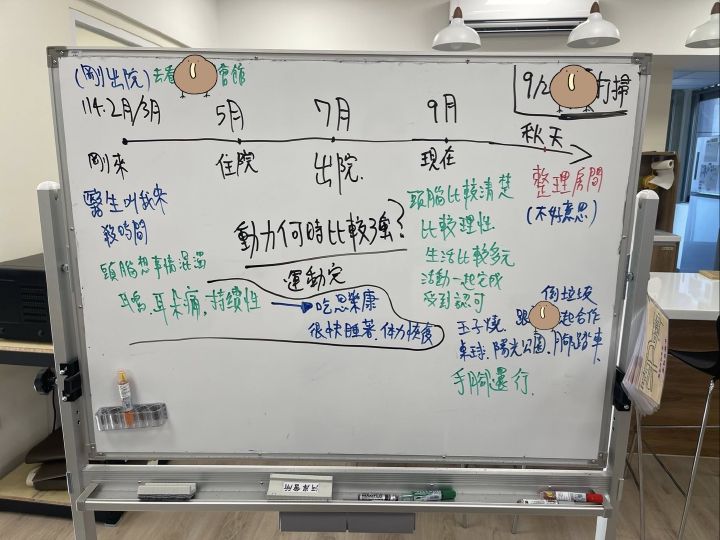 (剛出院) 去看 會館
114.2月/3月
5月
7月
9月
9/2 打掃
秋天
剛來
住院
出院.
現在
整理房間
(不好意思)
醫生叫我來
殺時間
頭腦想事情混濁
耳鳴、耳朵痛、持續性
動力何時比較強?
運動完
吃思樂康
很快睡著、体力恢復
頭腦比較清楚
比較理性
生活比較多元
活動一起完成
受到認可
倒垃圾
跟 起合作
玉子燒、
桌球、陽光公園、腳踏車
手腳還行.